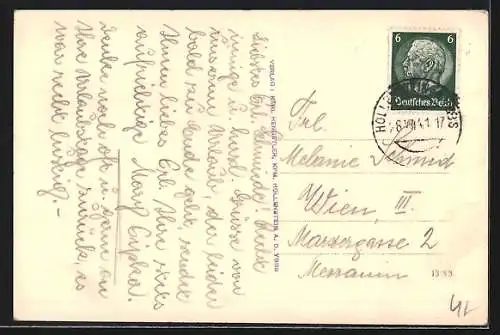 Liebstes Frl. Schmide! Viele
innige u. herzl. Grüsse von
unserem Urlaub, der leider
bald zu Ende geht, sendet
Ihnen liebes Frl. Ihre stets
aufrichtige Mary
Denke noch oft u. gern an
Ihre Urlaubstage zurück, es
war recht lustig.-
VERLAG: KARL HENGSTLER, KFM. HOLLENSTEIN A. D. YBBS
6
Deutsches Reich
HOLLENSTEIN YBBS
41 17
Frl.
Melanie Schmid
Wien, III.
Marxergasse 2
13 53